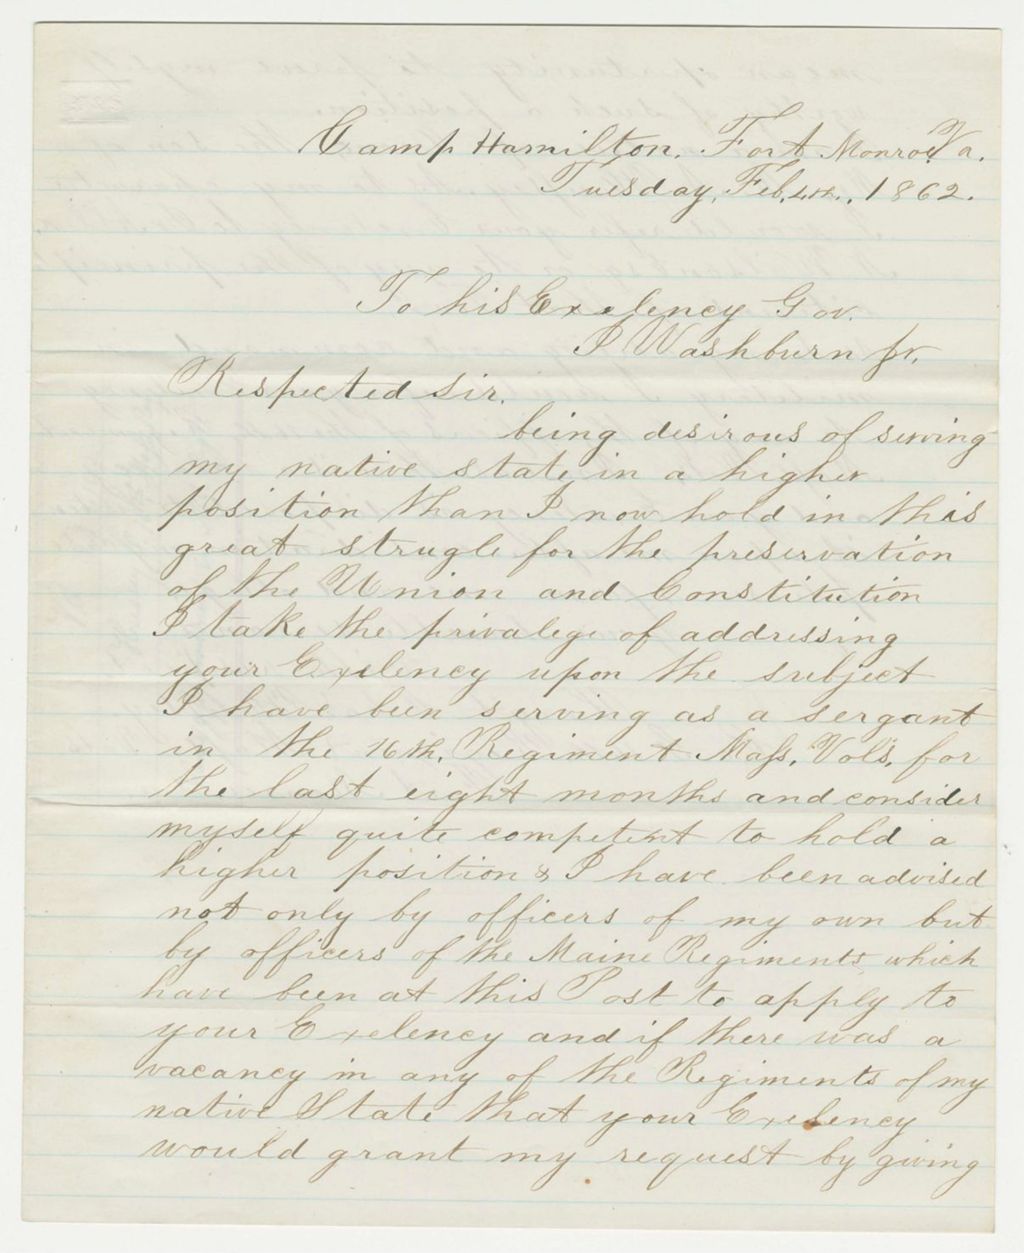 Camp Hamilton. Fort Monroe Va.
Tuesday, Feb, 4th., 1862.
To his Exelency Gov.
I Washburn Jr.
Respected Sir.
being desirous of serving
my native state, in a higher
position than I now hold in this
great strugle for the preservation
of the Union and Constitution
I take the privalege of addressing
your Exelency upon the subject
I have been serving as a sergant
in the 16th, Regiment Mass, Vols, for
the last eight months and consider
myself quite competent to hold a
higher position & I have been advised
not only by officers of my own but
by officers of the Maine Regiments, which
have been at this Post to apply to
your Exelency and if there was a
vacancy in any of the Regiments of my
native State that your Exelency
would grant my request by giving